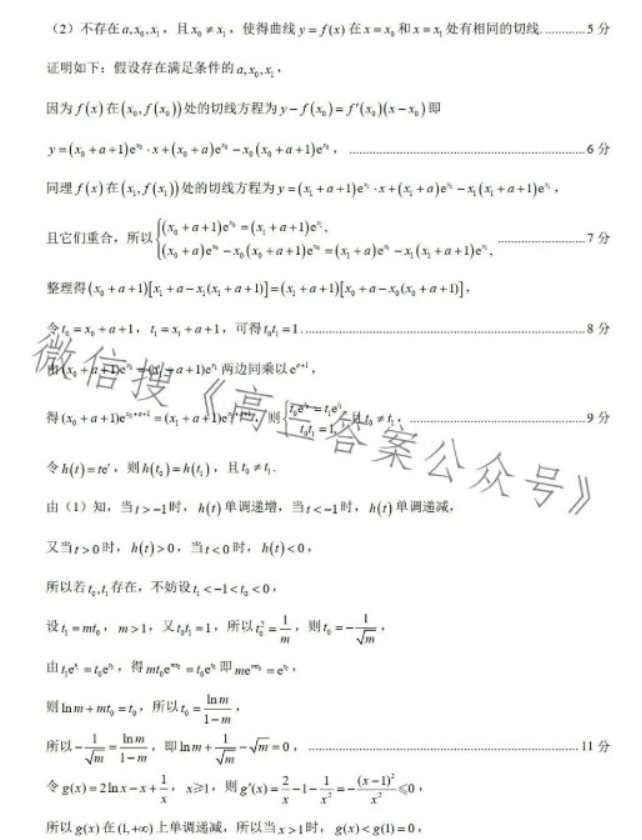 （2）不存在a,x₀,x₁，且x₀≠x₁，使得曲线y=f(x)在x=x₀和x=x₁处有相同的切线.............5分
证明如下：假设存在满足条件的a,x₀,x₁，
因为f(x)在(x₀,f(x₀))处的切线方程为y−f(x₀)=f′(x₀)(x−x₀)即
y=(x₀+a+1)e^{x₀}·x+(x₀+a)e^{x₀}−x₀(x₀+a+1)e^{x₀}，.............6分
同理f(x)在(x₁,f(x₁))处的切线方程为y=(x₁+a+1)e^{x₁}·x+(x₁+a)e^{x₁}−x₁(x₁+a+1)e^{x₁}，
且它们重合，所以{(x₀+a+1)e^{x₀}=(x₁+a+1)e^{x₁}, (x₀+a)e^{x₀}−x₀(x₀+a+1)e^{x₀}=(x₁+a)e^{x₁}−x₁(x₁+a+1)e^{x₁}, .............7分
整理得(x₀+a+1)[x₁+a−x₁(x₁+a+1)]=(x₁+a+1)[x₀+a−x₀(x₀+a+1)]，
令t₀=x₀+a+1，t₁=x₁+a+1，可得t₀t₁=1.............8分
由(x₀+a+1)e^{x₀}=(x₁+a+1)e^{x₁}两边同乘以e^{a+1}，
得(x₀+a+1)e^{x₀+a+1}=(x₁+a+1)e^{x₁+a+1}，则{t₀e^{t₀}=t₁e^{t₁}, t₀t₁=1, 且t₀≠t₁，.............9分
令h(t)=te^t，则h(t₀)=h(t₁)，且t₀≠t₁.
由（1）知，当t>−1时，h(t)单调递增，当t<−1时，h(t)单调递减，
又当t>0时，h(t)>0，当t<0时，h(t)<0，
所以若t₀,t₁存在，不妨设t₁<−1<t₀<0，
设t₁=mt₀，m>1，又t₀t₁=1，所以t₀²=1/m，则t₀=−1/√m，
由t₁e^{t₁}=t₀e^{t₀}，得mt₀e^{mt₀}=t₀e^{t₀}即me^{mt₀}=e^{t₀}，
则ln m+mt₀=t₀，所以t₀=ln m/(1−m)，
所以−1/√m=ln m/(1−m)，即ln m+1/√m−√m=0，.............11分
令g(x)=2ln x−x+1/x，x≥1，则g′(x)=2/x−1−1/x²=−(x−1)²/x²≤0，
所以g(x)在(1,+∞)上单调递减，所以当x>1时，g(x)<g(1)=0，
微信搜《高三答案公众号》